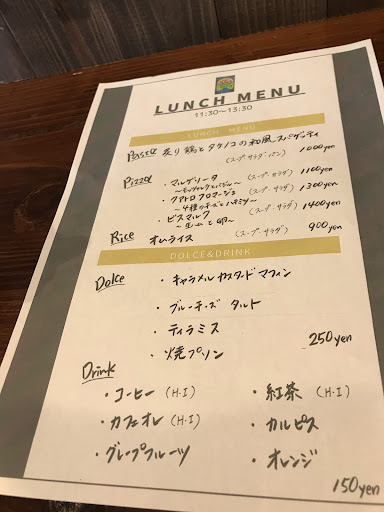 LUNCH MENU
11:30〜13:30
LUNCH MENU
Pasta 炙り鶏とタケノコの和風スパゲッティ
(スープ・サラダ・パン) 1000yen
Pizza ・マルゲリータ (スープ・サラダ) 1100yen
〜モッツァレラとバジル〜
・クアトロフロマージュ (スープ・サラダ) 1300yen
〜4種のチーズとハチミツ〜
・ビスマルク (スープ・サラダ) 1400yen
〜生ハムと卵〜
Rice オムライス (スープ・サラダ) 900yen
DOLCE&DRINK
Dolce ・キャラメルカスタードマフィン
・ブルーチーズタルト
・ティラミス
・焼プリン 250yen
Drink
・コーヒー (H・I) ・紅茶 (H・I)
・カフェオレ (H・I) ・カルピス
・グレープフルーツ ・オレンジ
150yen